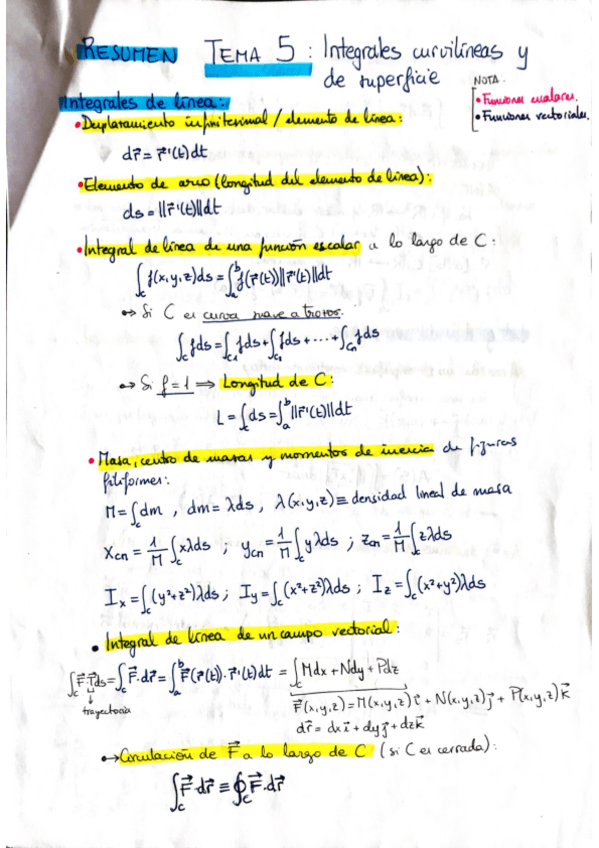 RESUMEN TEMA 5 : Integrales curvilíneas y
de superficie
NOTA.
• Funciones escalares.
• Funciones vectoriales.
Integrales de línea:
• Desplazamiento infinitesimal / elemento de línea:
dr⃗ = r⃗'(t)dt
• Elemento de arco (longitud del elemento de línea):
ds = ||r⃗'(t)||dt
• Integral de línea de una función escalar a lo largo de C:
∫_C f(x,y,z)ds = ∫_a^b f(r⃗(t))||r⃗'(t)||dt
↦ Si C es curva suave a trozos:
∫_C fds = ∫_C1 fds + ∫_C1 fds + ... + ∫_Cn fds
↦ Si f = 1 ⟹ Longitud de C:
L = ∫_C ds = ∫_a^b ||r⃗'(t)||dt
• Masa, centro de masas y momentos de inercia de figuras
filiformes:
M = ∫_C dm , dm = λds , λ(x,y,z) ≡ densidad lineal de masa
X_CM = 1/M ∫_C xλds ; y_CM = 1/M ∫_C yλds ; z_CM = 1/M ∫_C zλds
I_x = ∫_C (y²+z²)λds ; I_y = ∫_C (x²+z²)λds ; I_z = ∫_C (x²+y²)λds
• Integral de línea de un campo vectorial:
∫_C F⃗·T⃗ds = ∫_C F⃗·dr⃗ = ∫_a^b F⃗(r⃗(t))·r⃗'(t)dt = ∫_C Mdx + Ndy + Pdz
trayectoria
F⃗(x,y,z) = M(x,y,z)i⃗ + N(x,y,z)j⃗ + P(x,y,z)k⃗
dr⃗ = dxi⃗ + dyj⃗ + dzk⃗
↦ Circulación de F⃗ a lo largo de C (si C es cerrada):
∫_C F⃗·dr⃗ ≡ ∮_C F⃗·dr⃗